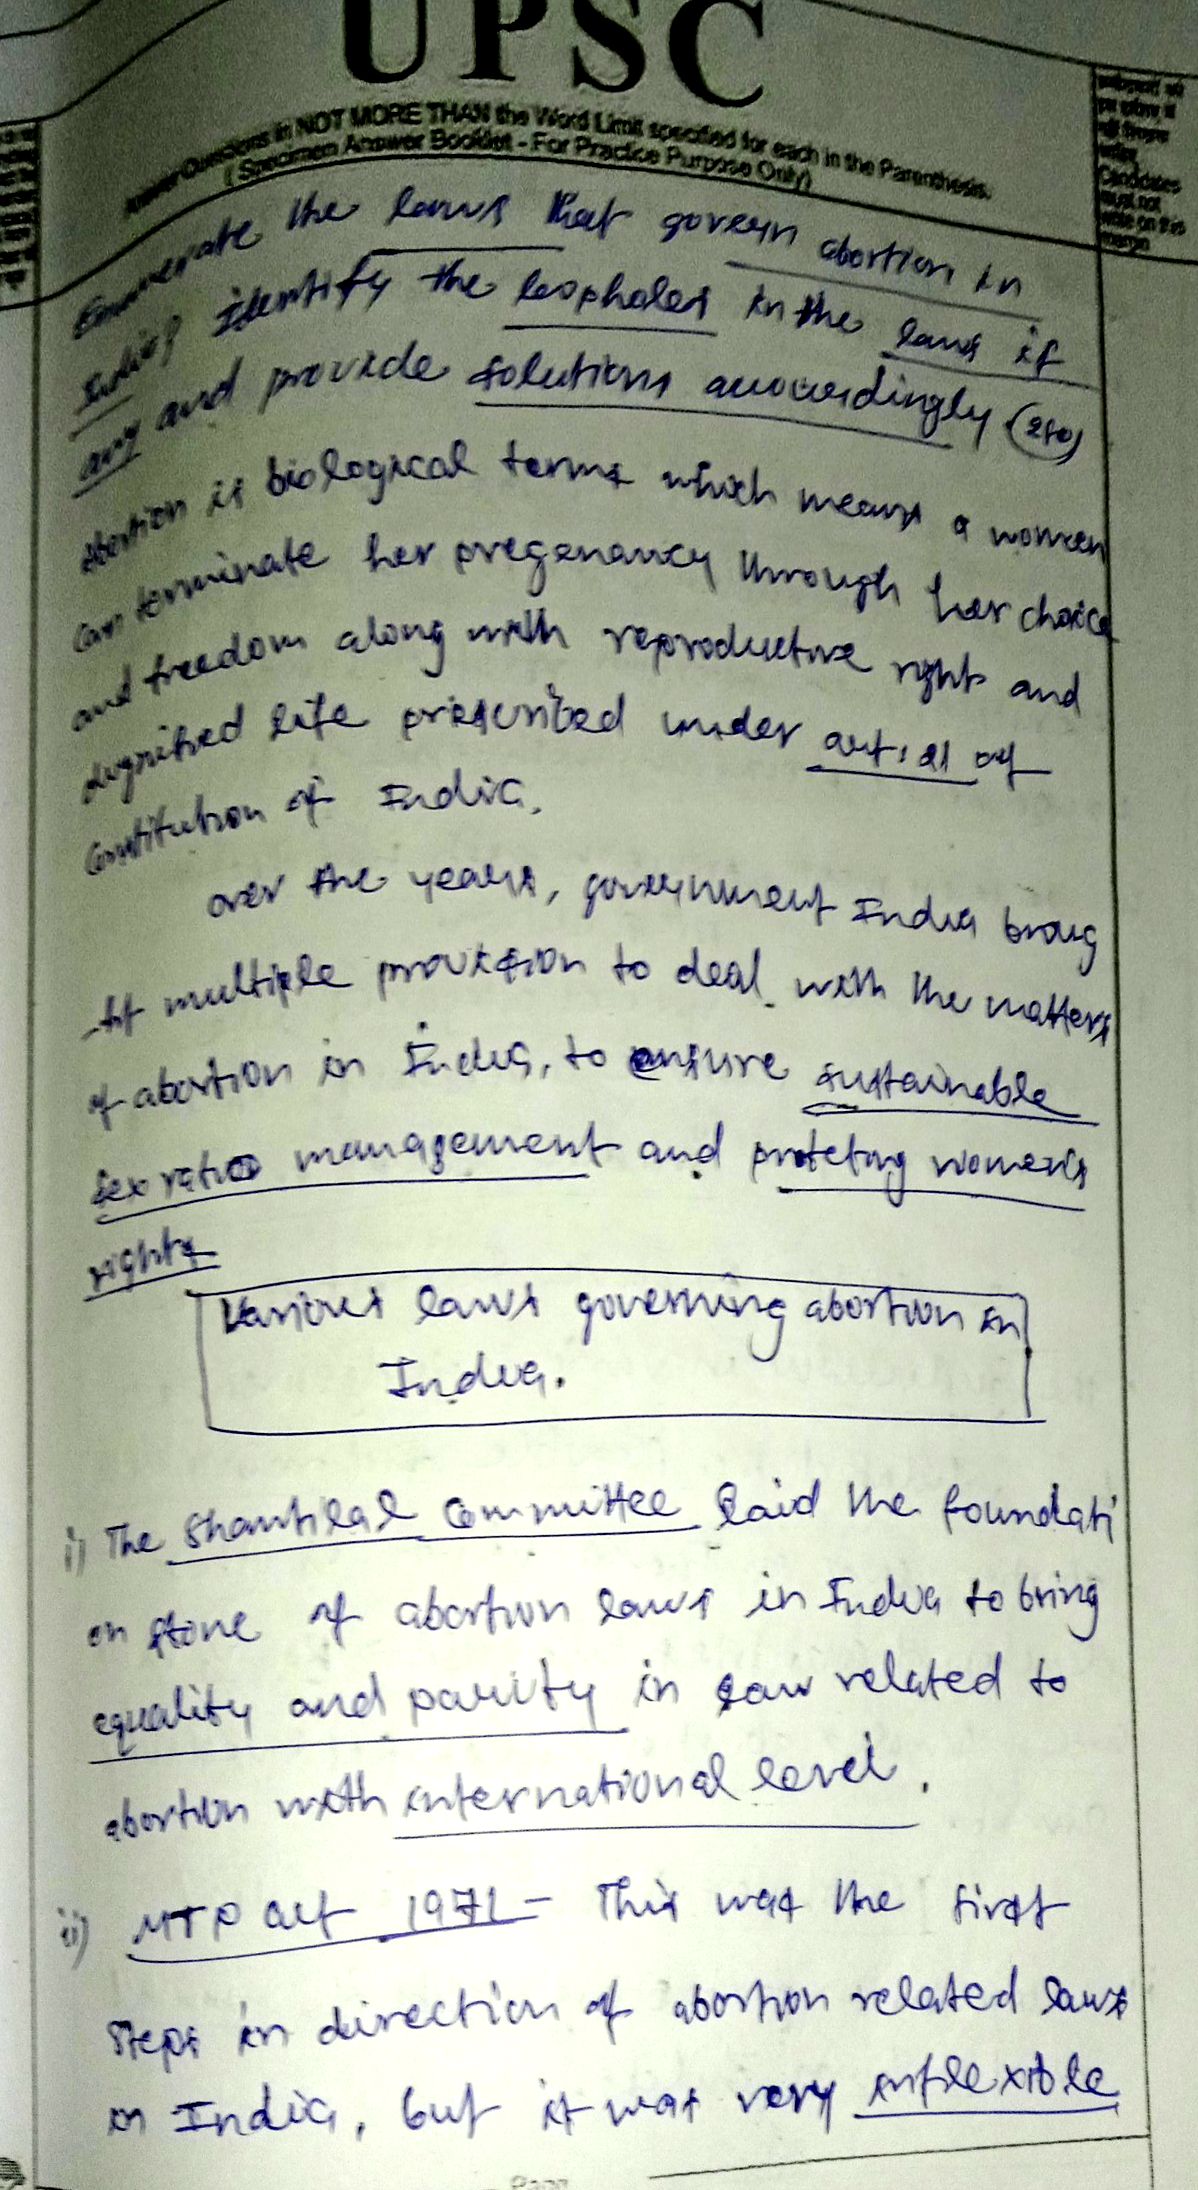 UPSC
Answer Questions in NOT MORE THAN the Word Limit specified for each in the Parenthesis.
(Specimen Answer Booklet - For Practice Purpose Only)
Candidates
must not
write on this
margin
Enumerate the laws that govern abortion in
India? Identify the loopholes in the laws if
any and provide solutions accordingly (250)
Abortion is biological terms which means a women
can terminate her pregenancy through her choice
and freedom along with reproductive right and
dignified life prescribed under art. 21 of
Constitution of India.
over the years, government India broug
-ht multiple provision to deal with the matters
of abortion in India, to ensure sustainable
sex ratio management and proteting women's
rights
Various laws governing abortion in
India.
i) The Shantilal Committee laid the foundati
on stone of abortion laws in India to bring
equality and parity in law related to
abortion with international level.
ii) MTP act 1971 - This was the first
steps in direction of abortion related laws
in India, but it was very inflexible
Page